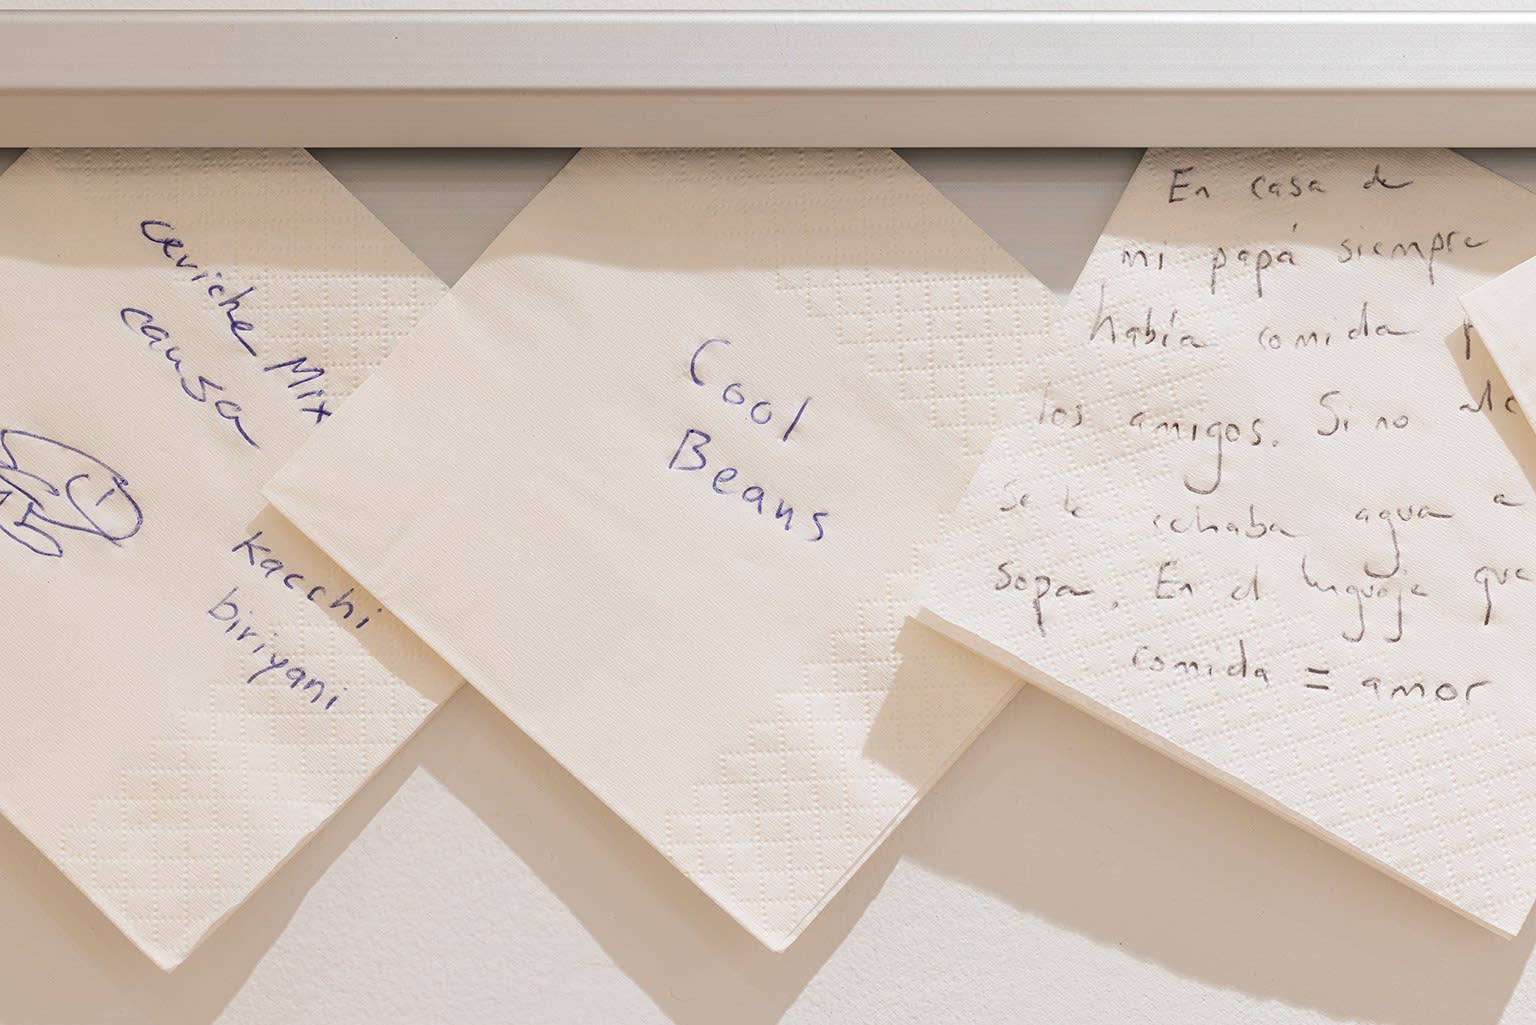 ceviche Mix
causa
Kacchi
biriyani
Cool
Beans
En casa de
mi papá siempre
había comida
los amigos. Si no
se le echaba agua a
sopa. En el lenguaje que
comida = amor